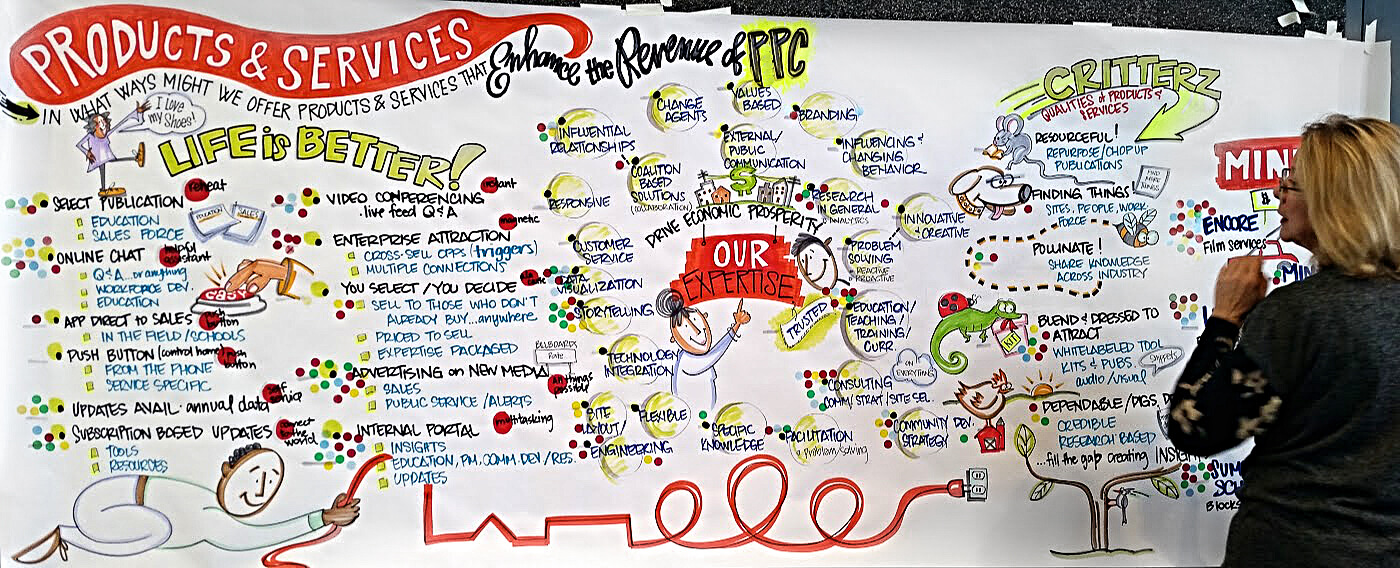 PRODUCTS & SERVICES
Enhance the Revenue of PPC
IN WHAT WAYS MIGHT WE OFFER PRODUCTS & SERVICES THAT
I LOVE
my SHOES!
LIFE is BETTER!
SELECT PUBLICATION
reheat
EDUCATION
SALES FORCE
EDUCATION
SALES
ONLINE CHAT
helpful
assistant
Q&A...or anything
WORKFORCE DEV.
EDUCATION
easy
APP DIRECT to SALES
push
button
IN THE FIELD/SCHOOLS
PUSH BUTTON (control home)
push
button
FROM THE PHONE
SERVICE SPECIFIC
UPDATES AVAIL. annual data
self
service
SUBSCRIPTION BASED UPDATES
connect
to the
world
TOOLS
RESOURCES
VIDEO CONFERENCING
instant
. live feed Q&A
magnetic
ENTERPRISE ATTRACTION
CROSS-SELL OPPS (triggers)
MULTIPLE CONNECTIONS
YOU SELECT / YOU DECIDE
SELL TO THOSE WHO DON'T
ALREADY BUY...anywhere
PRICED TO SELL
EXPERTISE PACKAGED
BILLBOARDS
Rate
ADVERTISING on NEW MEDIA
All things
possible
SALES
PUBLIC SERVICE / ALERTS
INTERNAL PORTAL
multitasking
INSIGHTS
EDUCATION, PM, COMM. DEV. / RES.
UPDATES
CHANGE
AGENTS
VALUES
BASED
BRANDING
INFLUENTIAL
RELATIONSHIPS
EXTERNAL/
PUBLIC
COMMUNICATION
INFLUENCING &
CHANGING
BEHAVIOR
COALITION
BASED
SOLUTIONS
(COLLABORATION)
$
RESPONSIVE
RESEARCH
IN GENERAL
& ANALYTICS
INNOVATIVE
& CREATIVE
DRIVE ECONOMIC PROSPERITY
CUSTOMER
SERVICE
OUR
EXPERTISE
PROBLEM
SOLVING
REACTIVE
PROACTIVE
DATA
VISUALIZATION
STORYTELLING
TRUSTED
EDUCATION/
TEACHING/
TRAINING/
CURR.
TECHNOLOGY
INTEGRATION
CONSULTING
COMM/STRAT/SITE SEL.
ON
EVERYTHING
SITE
LAYOUT/
ENGINEERING
FLEXIBLE
SPECIFIC
KNOWLEDGE
FACILITATION
& Problem/Solving
COMMUNITY DEV.
STRATEGY
CRITTERZ
QUALITIES of PRODUCTS &
SERVICES
RESOURCEFUL!
REPURPOSE/CHOP UP
PUBLICATIONS
FINDING THINGS!
SITES, PEOPLE, WORK
FORCE
FIND
MORE
THINGS
POLLINATE!
SHARE KNOWLEDGE
ACROSS INDUSTRY
KIT
BLEND & DRESSED TO
ATTRACT
WHITELABELED TOOL
KITS & PUBS.
audio/visual
Snippets
DEPENDABLE/DIGS, D
CREDIBLE
RESEARCH BASED
...fill the gap creating INSIGH
MIN
&
ENCORE
Film services
MIN
SUM
SC
Blocks